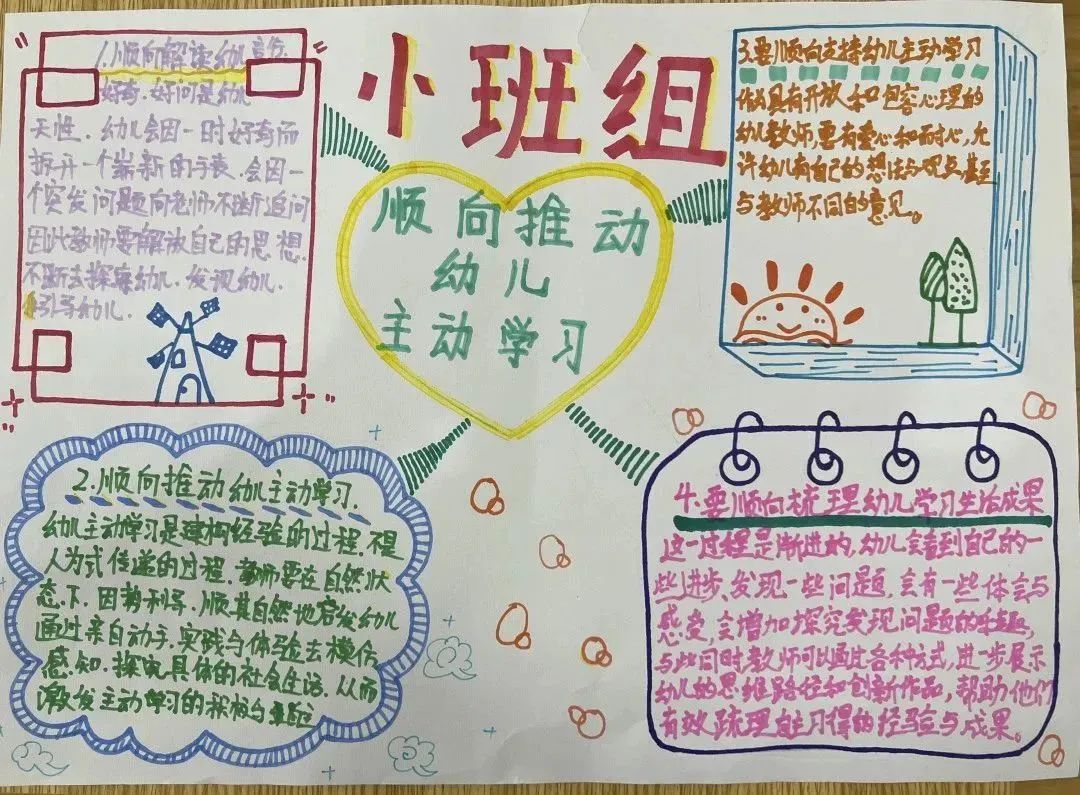 小班组
顺向推动
幼儿
主动学习
1.顺向解读幼儿
好奇.好问是幼儿
天性.幼儿会因一时好奇而
拆开一个崭新的手表.会因一
个突发问题向老师不断追问
因此教师要解放自己的思想.
不断去探索幼儿.发现幼儿.
引导幼儿.
2.顺向推动幼儿主动学习.
幼儿主动学习是建构经验的过程.不是
人为式传递的过程.教师要在自然状
态下.因势利导.顺其自然地启发幼儿
通过亲自动手.实践与体验去模仿
感知.探究具体的社会生活.从而
激发主动学习的积极与
3.要顺向支持幼儿主动学习
作为具有开放和包容心理的
幼儿教师,要有爱心和耐心,允
许幼儿有自己的想法与观点,甚至
与教师不同的意见。
4.要顺向梳理幼儿学习生活成果
这一过程是渐进的,幼儿会看到自己的一
些进步、发现一些问题,会有一些体会与
感受,会增加探究发现问题的乐趣,
与此同时,教师可以通过各种方式,进步展示
幼儿的思维路径和创新作品,帮助他们
有效梳理自主习得的经验与成果。